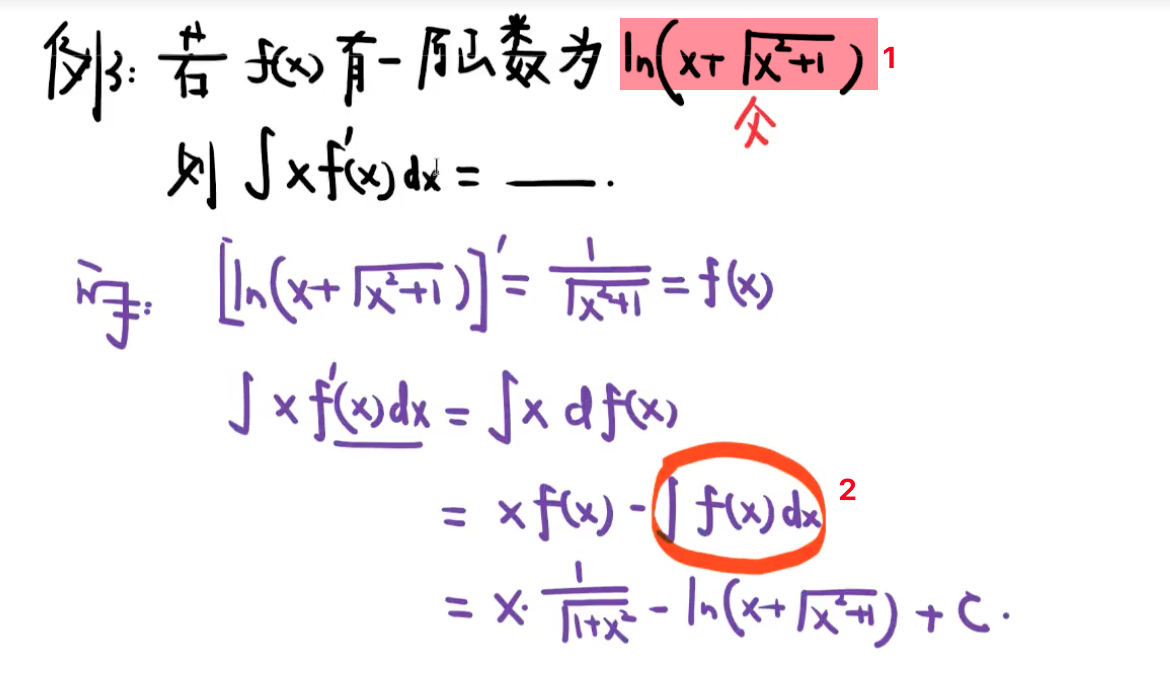 例3: 若 f(x) 有一原函数为 ln(x+√(x²+1)) 1
父
则 ∫xf'(x)dx = ____.
[ln(x+√(x²+1))]' = 1/√(x²+1) = f(x)
∫xf'(x)dx = ∫x df(x)
= xf(x) - ∫f(x)dx 2
= x·1/√(1+x²) - ln(x+√(x²+1)) + C.